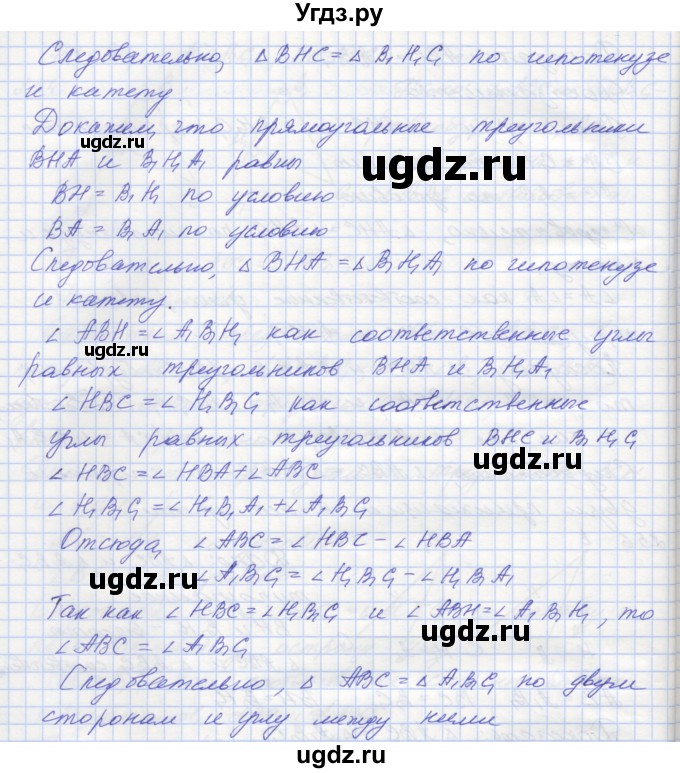 Угдз.ру
Следовательно, △ BHC = △ B₁H₁C₁ по гипотенузе
и катету.
Докажем, что прямоугольные треугольники
BHA и B₁H₁A₁ равны
BH = B₁H₁ по условию
BA = B₁A₁ по условию
Следовательно, △ BHA = △ B₁H₁A₁ по гипотенузе
и катету.
∠ ABH = ∠ A₁B₁H₁ как соответственные углы
равных треугольников BHA и B₁H₁A₁
∠ HBC = ∠ H₁B₁C₁ как соответственные
углы равных треугольников BHC и B₁H₁C₁
∠ HBC = ∠ HBA + ∠ ABC
∠ H₁B₁C₁ = ∠ H₁B₁A₁ + ∠ A₁B₁C₁
Отсюда, ∠ ABC = ∠ HBC - ∠ HBA
∠ A₁B₁C₁ = ∠ H₁B₁C₁ - ∠ H₁B₁A₁
Так как ∠ HBC = ∠ H₁B₁C₁ и ∠ ABH = ∠ A₁B₁H₁, то
∠ ABC = ∠ A₁B₁C₁
Следовательно, △ ABC = △ A₁B₁C₁ по двум
сторонам и углу между ними
ugdz.ru
ugdz.ru
ugdz.ru
ugdz.ru
ugdz.ru
ugdz.ru
ugdz.ru
ugdz.ru